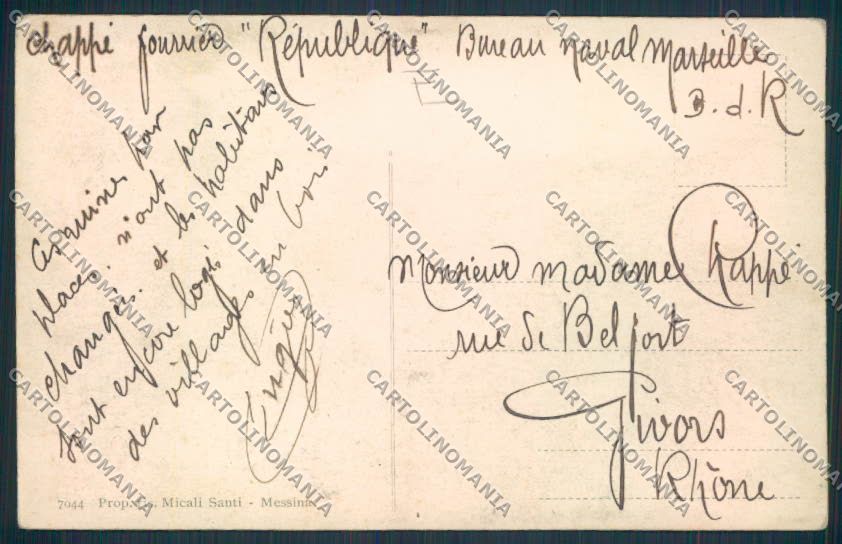 Chappé fourrier "République" Bureau naval Marseille
B. d. R
Ces ruines par
places n'ont pas
changés. et les habitans
sont encore logé dans
des villages en bois
Monsieur madame Chappé
rue de Belfort
Givors
Rhône
7944 Prop. Gs. Micali Santi - Messina
CARTOLINOMANIA